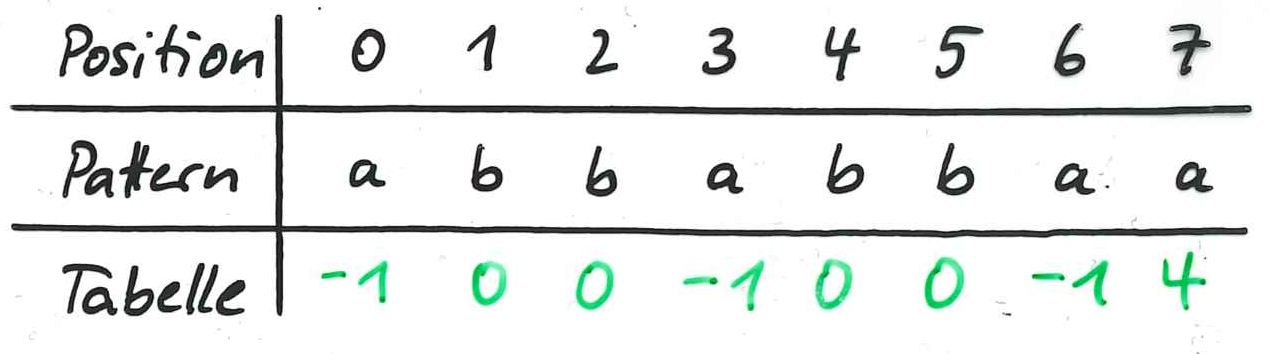 Position 0 1 2 3 4 5 6 7
Pattern a b b a b b a a
Tabelle -1 0 0 -1 0 0 -1 4